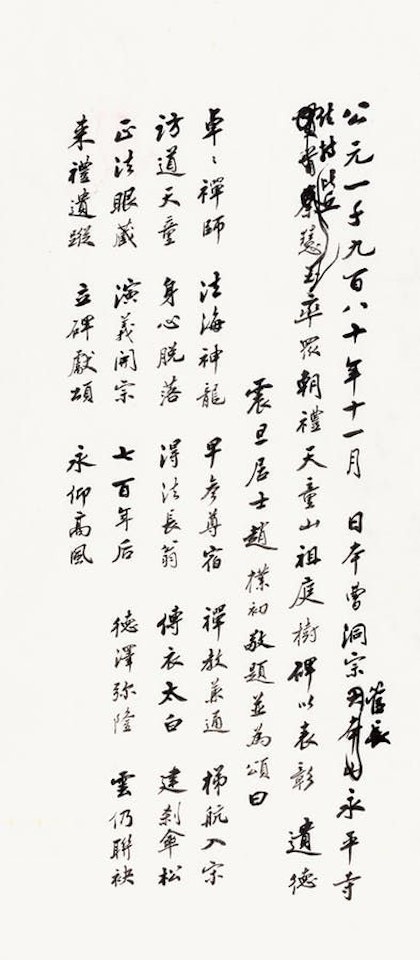 公元一千九百八十年十一月 日本曹洞宗管長永平寺
秦慧玉率眾朝禮天童山祖庭樹碑以表彰 遺德
震旦居士趙樸初敬題並為頌曰
卓〻禪師 法海神龍 早參尊宿 禪教兼通 梯航入宋
訪道天童 身心脫落 得法長翁 傳衣太白 建刹傘松
正法眼藏 演義開宗 七百年后 德澤弥隆 雲仍聯袂
来禮遺蹤 立碑獻頌 永仰高風